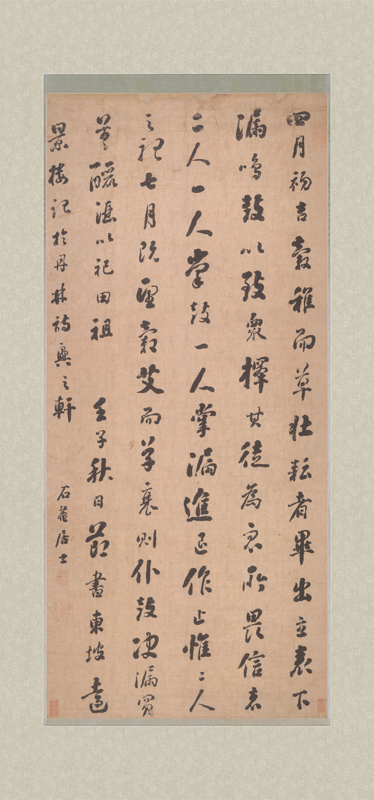 四月初吉穀稚而草壯耘者畢出立表下
漏鳴鼓以致衆擇其徒為衆所畏信者
二人一人掌鼓一人掌漏進退作止惟二人
之七月既望穀艾而草衰則仆鼓決漏買
以祀田祖 壬子秋日節書東坡遠
景樓記於丹林詩興之軒
石菴居士